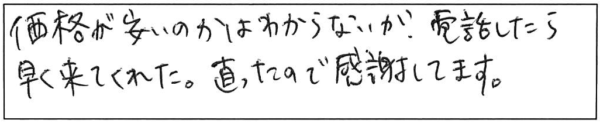 価格が安いのかはわからないが、電話したら
早く来てくれた。直ったので感謝してます。